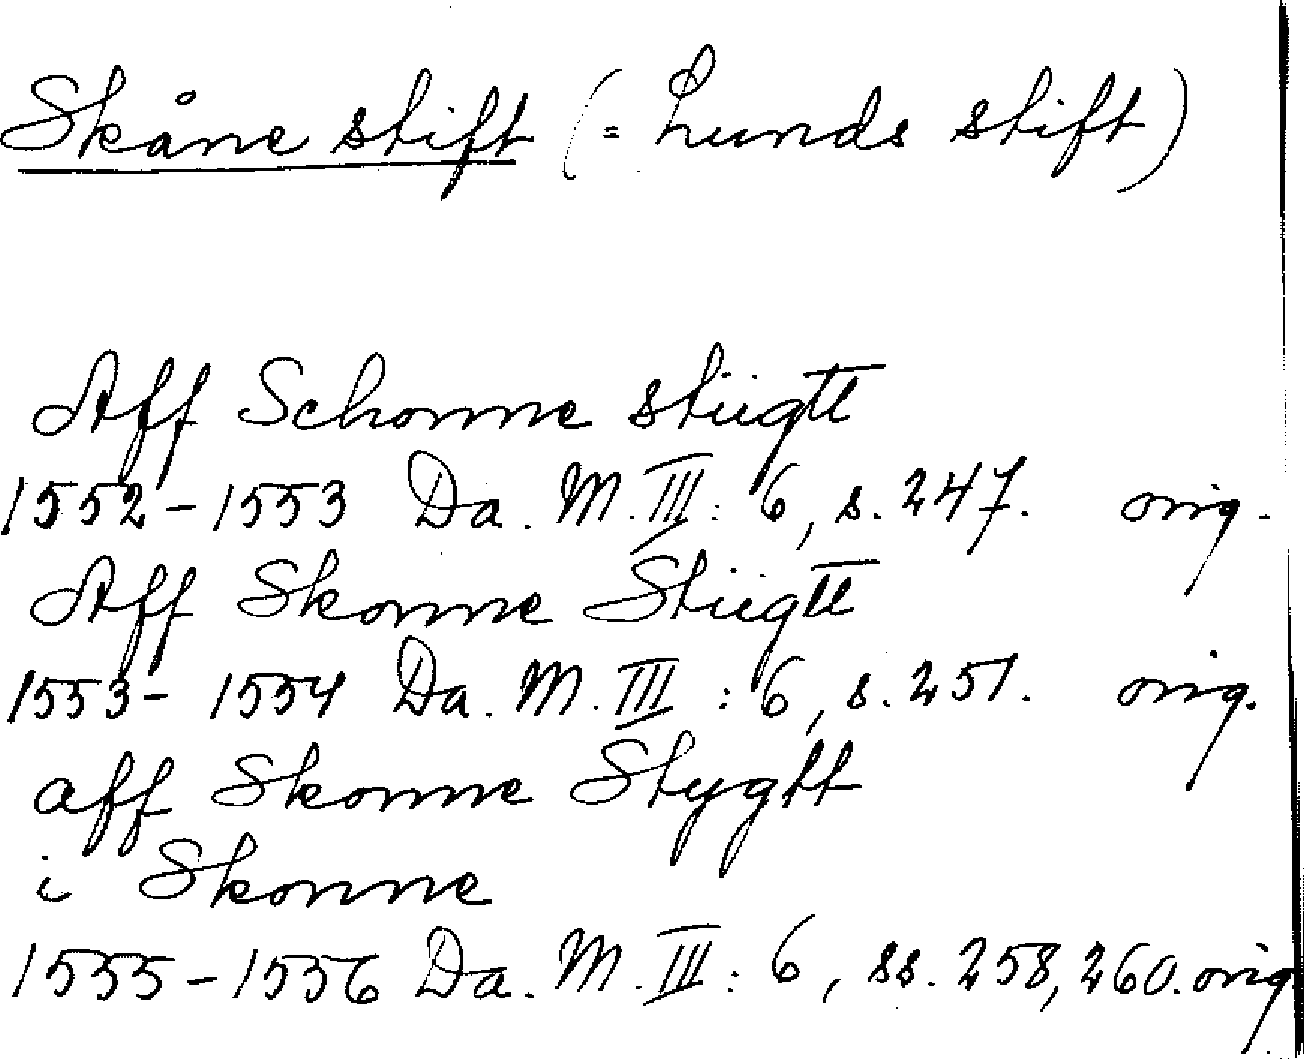 Skåne stift (= Lunds stift)
Aff Schonne stiigtt
1552-1553 Da. M. III: 6, s. 247. orig.
Aff Skonne Stiigtt
1553-1554 Da. M. III: 6, s. 251. orig.
aff Skonne Stygtt
i Skonne
1555-1556 Da. M. III: 6, ss. 258, 260. orig